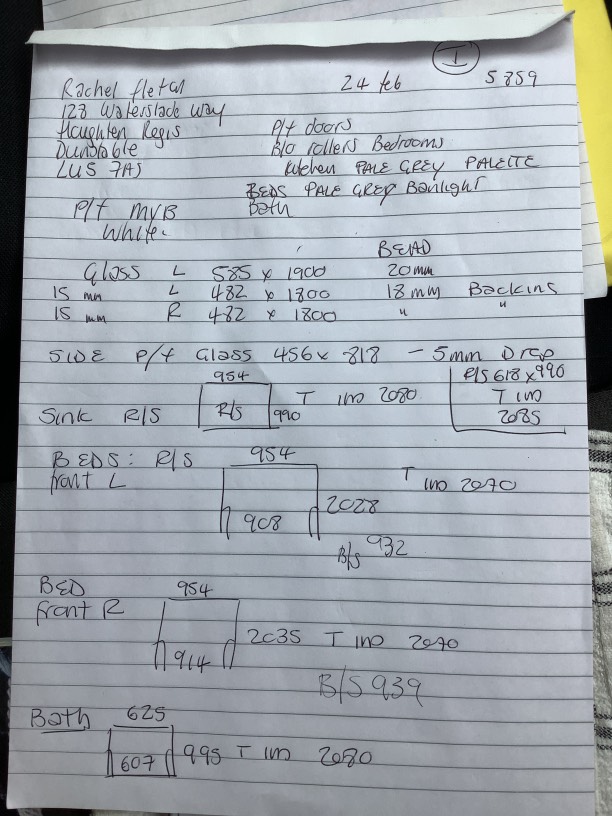 1
24 feb 5859
Rachel fletal
128 Waterslade Way
Houghten Regis P/f doors
Dunstable B/o rollers Bedrooms
LU5 7AS Kitchen PALE GREY PALETTE
BEDS PALE GREY Banlight
P/f MyB Bath
White.
BEAD
Glass L 585 x 1900 20mm
15 mm L 482 x 1800 18 mm Backins
15 mm R 482 x 1800 " "
SIDE P/f Glass 456 x 818 - 5mm Drop
954 R/S 618 x 990
Sink R/S R/S 990 T ino 2080 T ino
2085
BEDS: R/S 954
front L T ino 2070
908 2028
B/S 932
BED 954
front R
914 2035 T ino 2070
B/S 939
Bath 625
607 995 T ino 2080